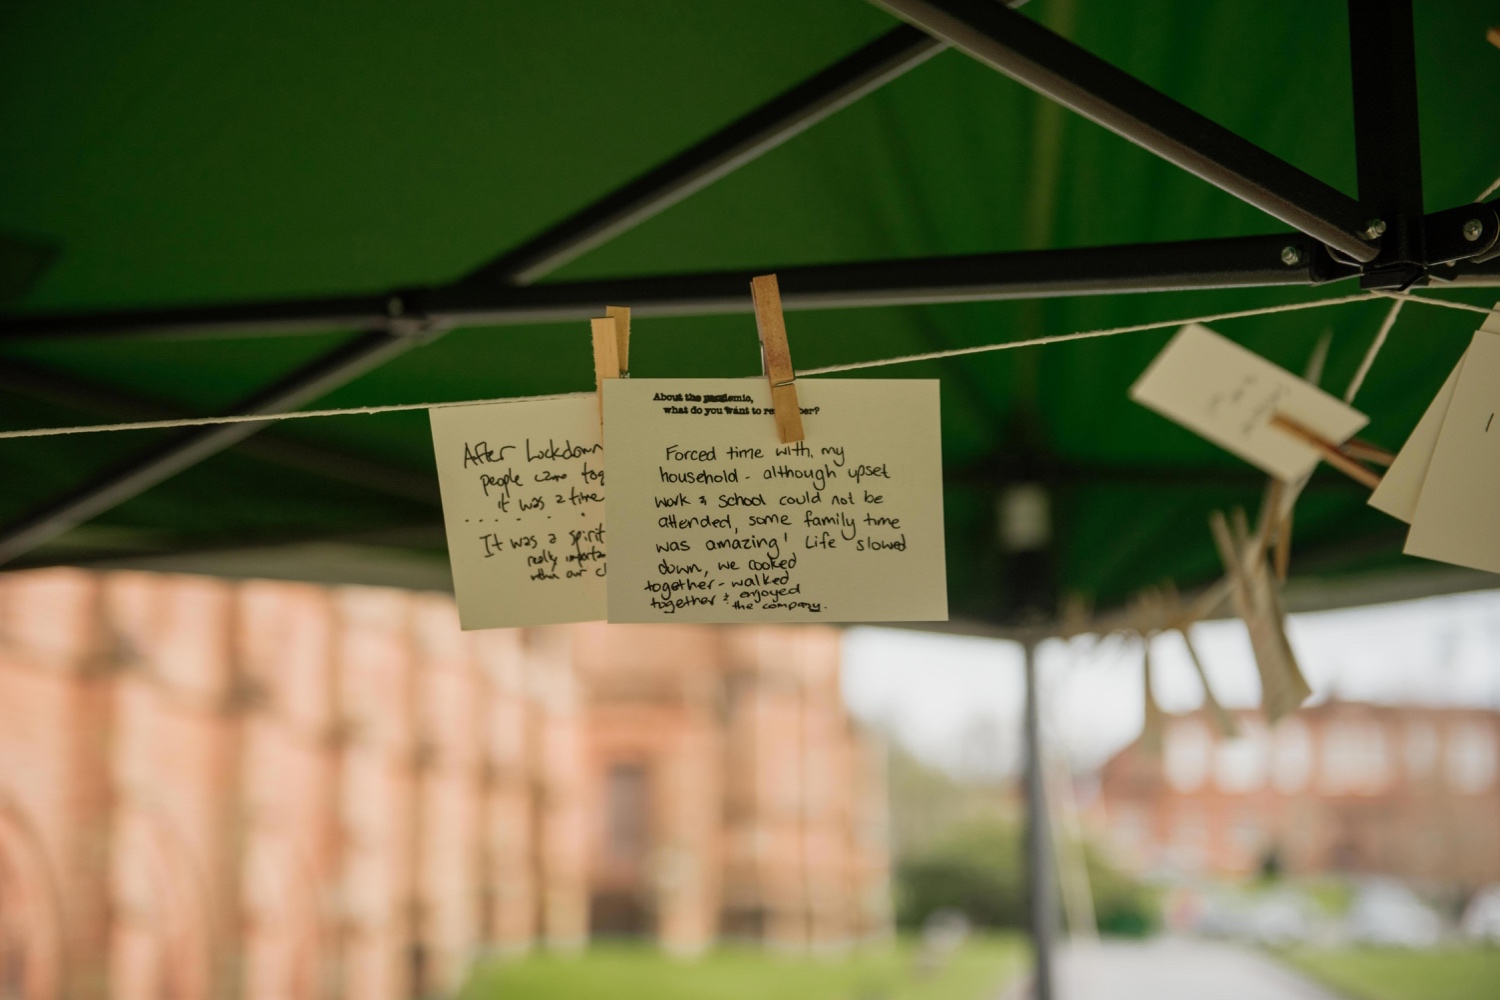 After Lockdown
people came tog
it was a time
It was a spirit
really importa
within our c
About the pandemic,
what do you want to remember?
Forced time with, my
household - although upset
work & school could not be
attended, some family time
was amazing! Life slowed
down, we cooked
together - walked
together & enjoyed
the company.